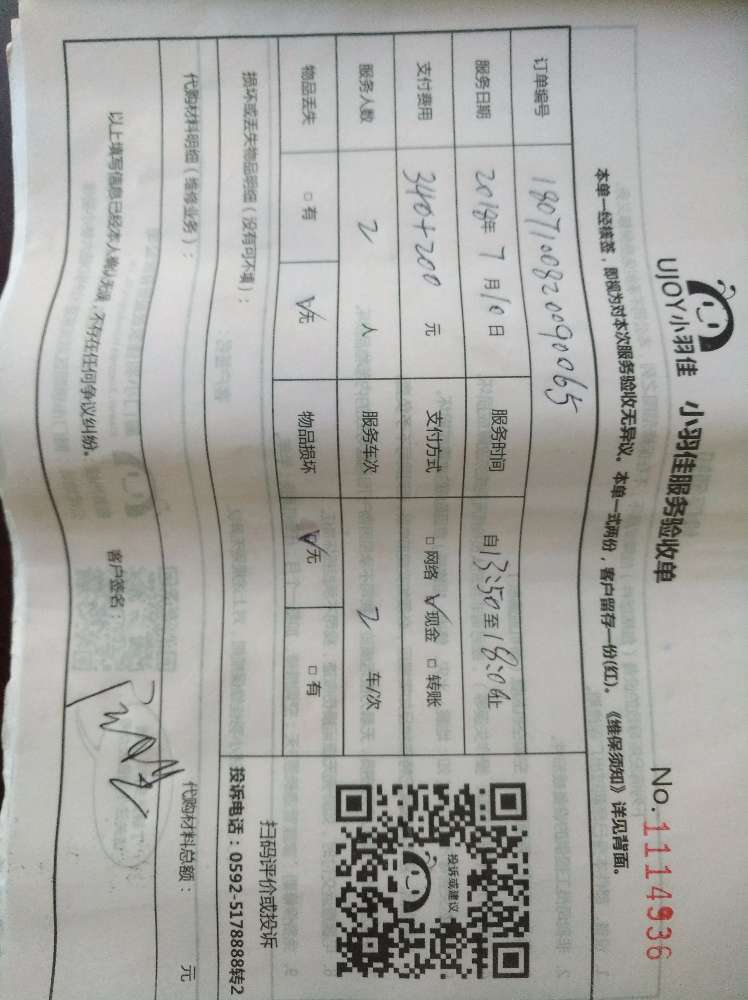 UJOY小羽佳 小羽佳服务验收单 No. 1114936
本单一经核签，即视为对本次服务验收无异议。本单一式两份，客户留存一份(红)。《维保须知》详见背面。
订单编号 1807100820090065
服务日期 2018年 7月10日 服务时间 自13:50至18:06止
支付费用 340+200 元 支付方式 □网络 ☑现金 □转账
服务人数 2 人 服务车次 2 车/次
物品丢失 □有 ☑无 物品损坏 ☑无 □有
损坏或丢失物品明细（没有可不填）：
代购材料明细（维修业务）： 代购材料总额： 元
以上填写信息已经本人确认无误，不存在任何争议纠纷。 客户签名：
投诉或建议
扫码评价或投诉
投诉电话：0592-5178888转2